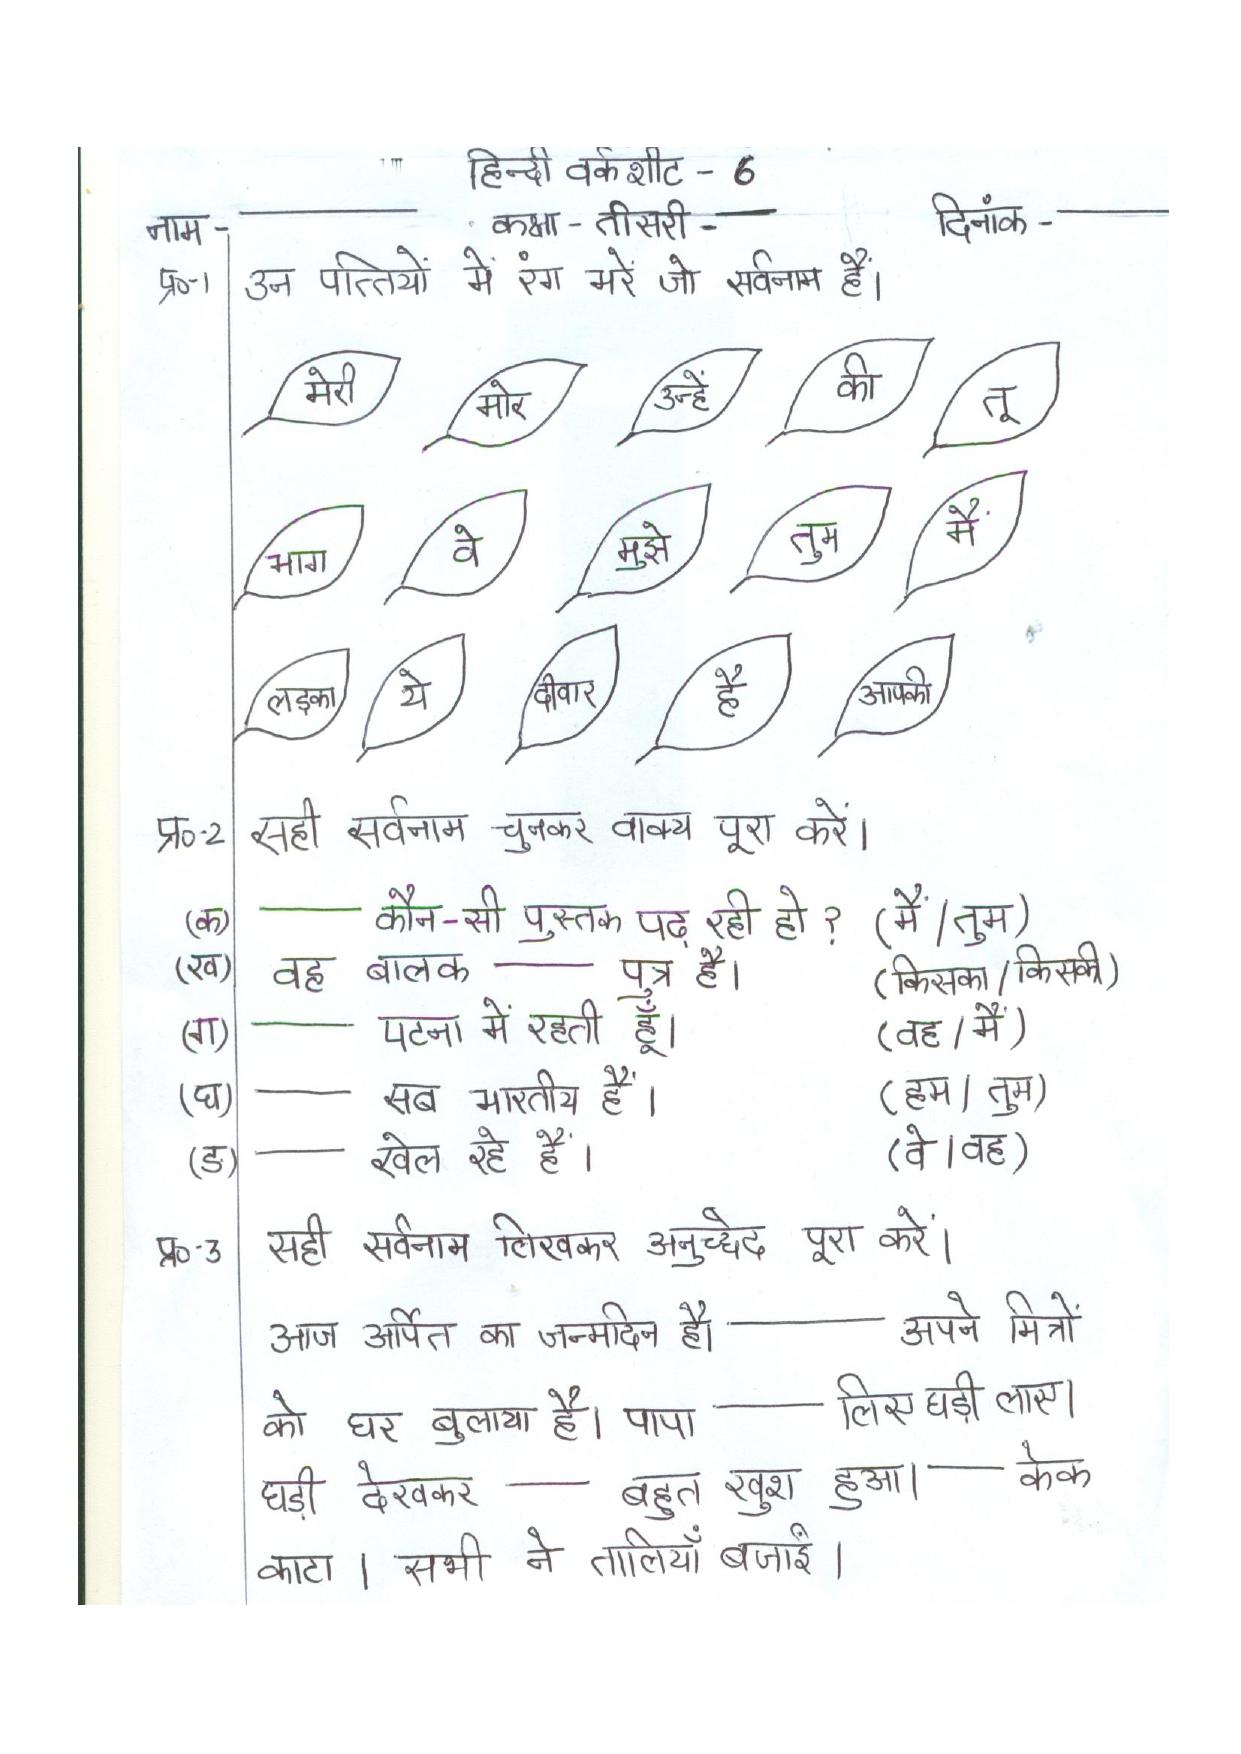 हिन्दी वर्कशीट - 6
नाम - कक्षा - तीसरी - दिनांक -
प्र०-1 उन पत्तियों में रंग भरें जो सर्वनाम हैं।
मेरी मोर उन्हें की तू
भाग वे मुझे तुम मैं
लड़का ये दीवार है आपकी
प्र०-2 सही सर्वनाम चुनकर वाक्य पूरा करें।
(क) कौन-सी पुस्तक पढ़ रही हो ? (मैं / तुम)
(ख) वह बालक पुत्र है। (किसका / किसकी)
(ग) पटना में रहती हूँ। (वह / मैं)
(घ) सब भारतीय हैं। (हम / तुम)
(ङ) खेल रहे हैं। (वे / वह)
प्र०-3 सही सर्वनाम लिखकर अनुच्छेद पूरा करें।
आज अर्पित का जन्मदिन है। अपने मित्रों
को घर बुलाया है। पापा लिए घड़ी लाए।
घड़ी देखकर बहुत खुश हुआ। केक
काटा । सभी ने तालियाँ बजाईं ।